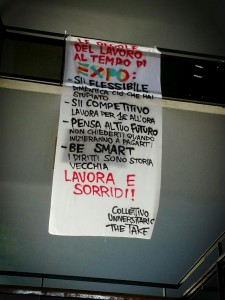 LE REGOLE
DEL LAVORO
AL TEMPO DI
EXPO:
- SII FLESSIBILE
DIMENTICA CIÒ CHE HAI
STUDIATO
- SII COMPETITIVO
LAVORA PER 1€ ALL'ORA
- PENSA AL TUO FUTURO
NON CHIEDERTI QUANDO
INIZIERANNO A PAGARTI
- BE SMART
I DIRITTI SONO STORIA
VECCHIA
LAVORA E
SORRIDI!!
COLLETTIVO
UNIVERSITARIO
THE TAKE